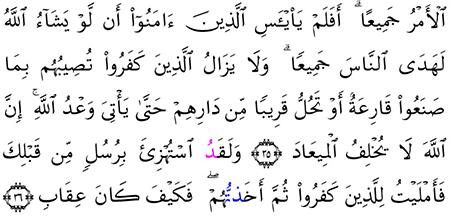 ٱلْأَمْرُ جَمِيعًا ۗ أَفَلَمْ يَا۟يْـَٔسِ ٱلَّذِينَ ءَامَنُوٓا۟ أَن لَّوْ يَشَآءُ ٱللَّهُ
لَهَدَى ٱلنَّاسَ جَمِيعًا ۗ وَلَا يَزَالُ ٱلَّذِينَ كَفَرُوا۟ تُصِيبُهُم بِمَا
صَنَعُوا۟ قَارِعَةٌ أَوْ تَحُلُّ قَرِيبًا مِّن دَارِهِمْ حَتَّىٰ يَأْتِىَ وَعْدُ ٱللَّهِ ۚ إِنَّ
ٱللَّهَ لَا يُخْلِفُ ٱلْمِيعَادَ ﴿٣٥﴾ وَلَقَدُ ٱسْتُهْزِئَ بِرُسُلٍ مِّن قَبْلِكَ
فَأَمْلَيْتُ لِلَّذِينَ كَفَرُوا۟ ثُمَّ أَخَذتُّهُمْ ۖ فَكَيْفَ كَانَ عِقَابِ ﴿٣٦﴾